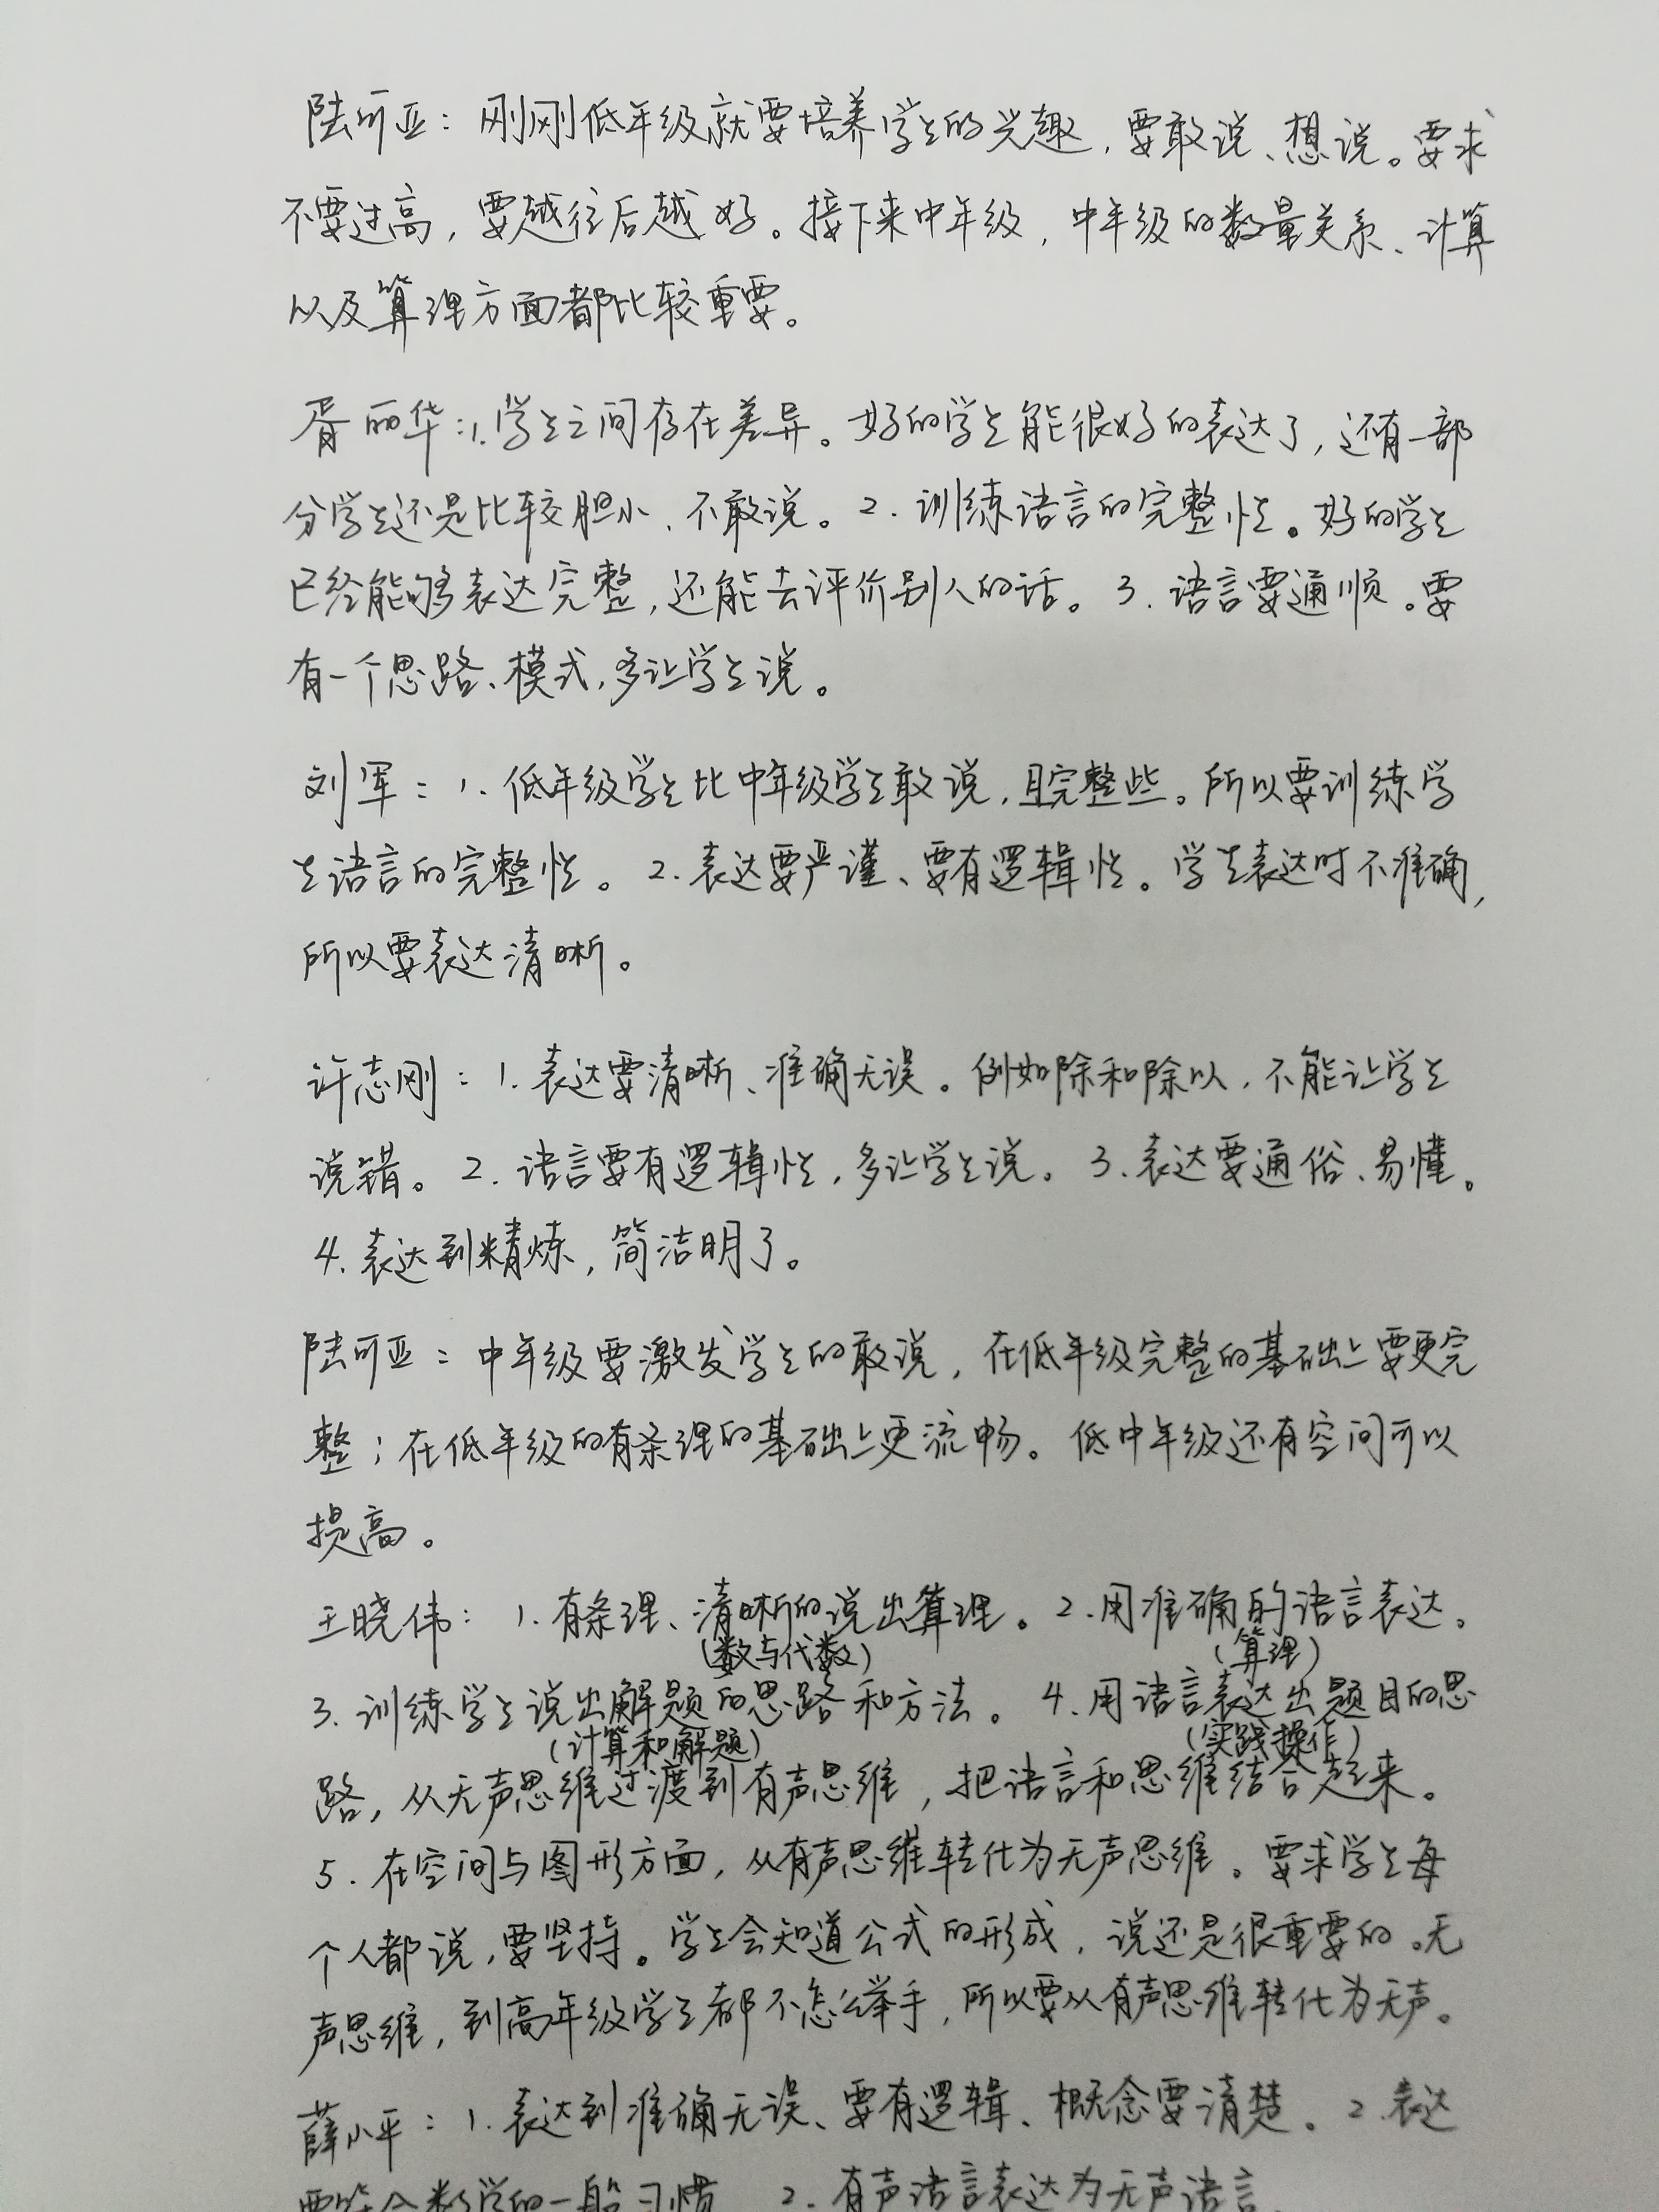 陆可亚：刚刚低年级就要培养学生的兴趣，要敢说、想说。要求
不要过高，要越往后越好。接下来中年级，中年级的数量关系、计算
以及算理方面都比较重要。
胥丽华：1.学生之间存在差异。好的学生能很好的表达了，还有一部
分学生还是比较胆小、不敢说。2.训练语言的完整性。好的学生
已经能够表达完整，还能去评价别人的话。3.语言要通顺。要
有一个思路、模式，多让学生说。
刘军：1.低年级学生比中年级学生敢说，且完整些。所以要训练学
生语言的完整性。2.表达要严谨、要有逻辑性。学生表达时不准确，
所以要表达清晰。
许志刚：1.表达要清晰、准确无误。例如除和除以，不能让学生
说错。2.语言要有逻辑性，多让学生说。3.表达要通俗、易懂。
4.表达到精炼，简洁明了。
陆可亚：中年级要激发学生的敢说，在低年级完整的基础上要更完
整；在低年级的有条理的基础上更流畅。低中年级还有空间可以
提高。
王晓伟：1.有条理、清晰的说出算理。2.用准确的语言表达。
(数与代数) (算理)
3.训练学生说出解题的思路和方法。4.用语言表达出题目的思
(计算和解题) (实践操作)
路，从无声思维过渡到有声思维，把语言和思维结合起来。
5.在空间与图形方面，从有声思维转化为无声思维。要求学生每
个人都说，要坚持。学生会知道公式的形成，说还是很重要的。无
声思维，到高年级学生都不怎么举手，所以要从有声思维转化为无声。
薛小平：1.表达到准确无误、要有逻辑、概念要清楚。2.表达
要符合数学的一般习惯 2.有声语言表达为无声语言